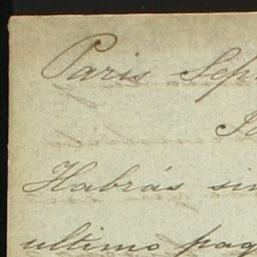 Paris Sep
Habrás sin
ultimo pag